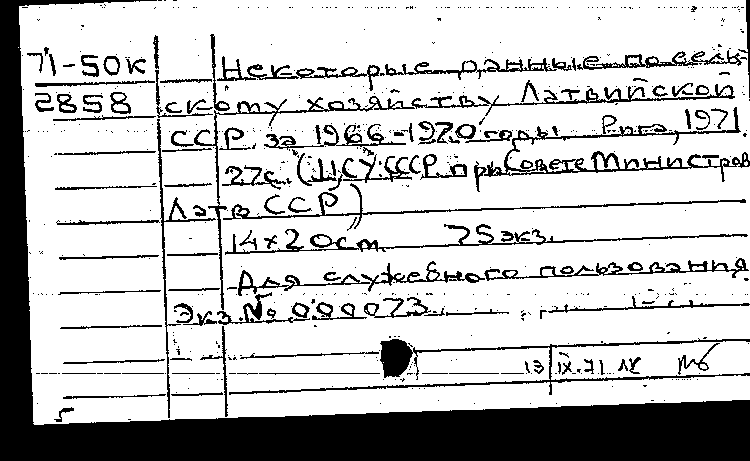 71-50к Некоторые данные по сель-
2858 скому хозяйству Латвийской
ССР за 1966-1970 годы. Рига, 1971.
27с. (ЦСУ СССР при Совете Министров
Латв ССР)
14х20см. 75 экз.
Для служебного пользования
Экз. № 000073
13 IX.71